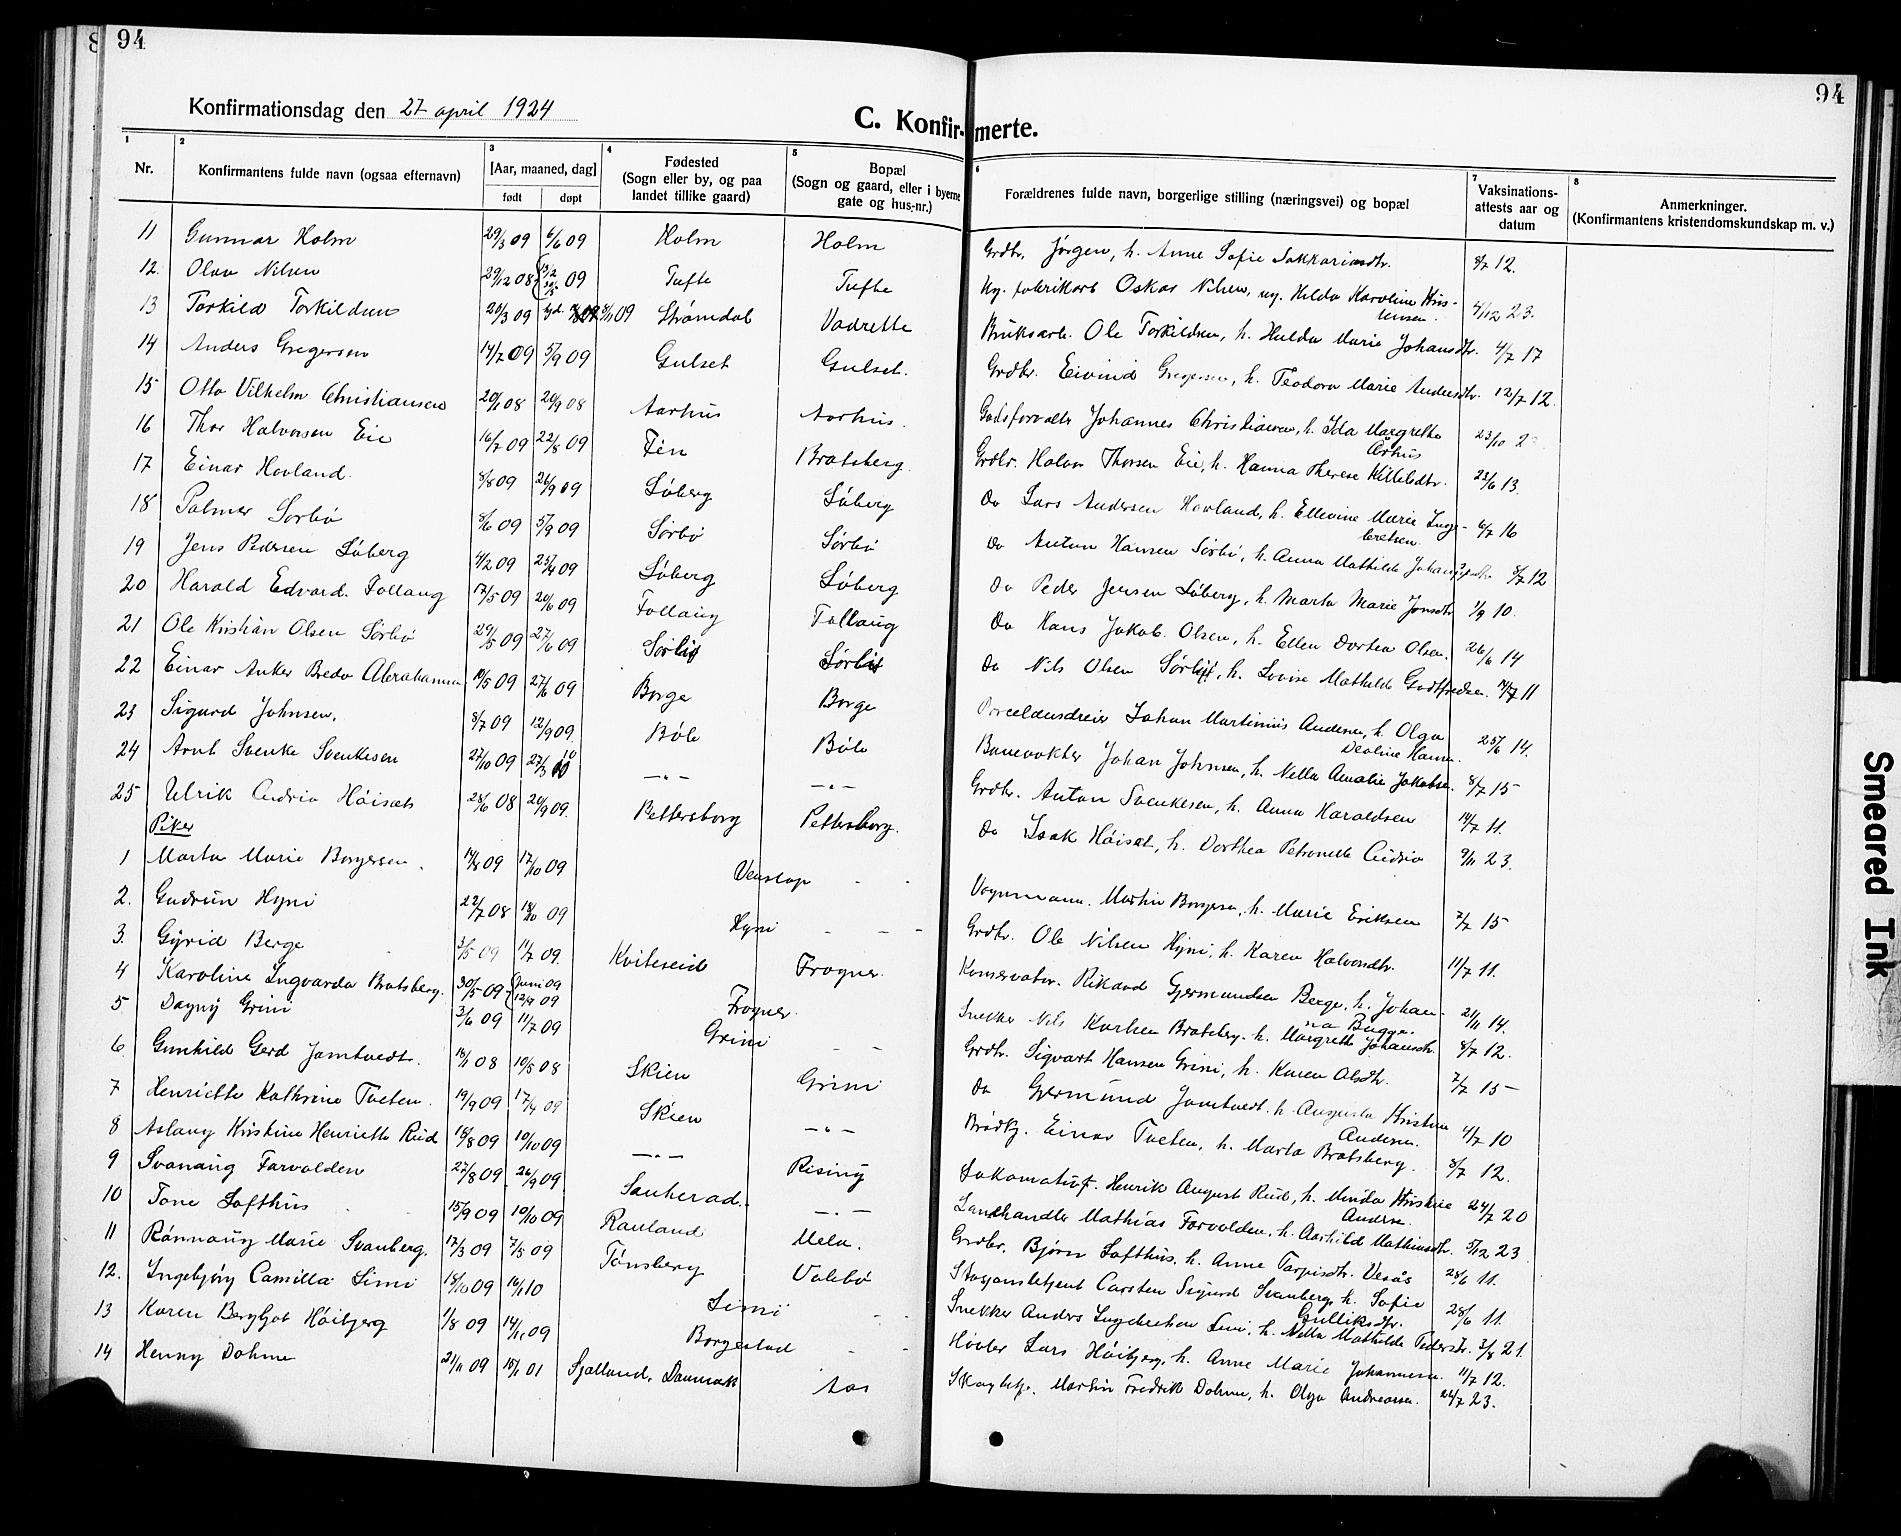 94
94
Konfirmationsdag den 27 april 1924
C. Konfirmerte.
1 2 3 4 5 6 7 8
Nr. Konfirmantens fulde navn (ogsaa efternavn) [Aar, maaned, dag] født døpt Fødested (Sogn eller by, og paa landet tillike gaard) Bopæl (Sogn og gaard, eller i byerne gate og hus-nr.) Forældrenes fulde navn, borgerlige stilling (næringsvei) og bopæl Vaksinations-attests aar og datum Anmerkninger. (Konfirmantens kristendomskundskap m. v.)
11 Gunnar Holm 29/3 09 6/6 09 Holm Holm Grdbr. Jørgen, h. Anne Sofie Sakkariasdtr. 8/7 12.
12. Olav Nilsen 29/12 08 09 Tufte Tufte Ug. fabrikarb Oskar Nilsen, ug. Hilda Karoline Kris-tensen. 4/12 23.
13 Torkild Torkildsen 20/3 09 09 Strømdal Vadrette Bruksarb. Ole Torkildsen, h. Hulda Marie Johansdtr. 4/7 17
14 Anders Gregersen 14/7 09 5/9 09 Gulset Gulset. Grdbr. Eivind Gregersen, h. Teodora Marie Andersdtr. 12/7 12.
15 Otto Vilhelm Christiansen 20/1 08 20/9 08 Aarhus Aarhus. Godsforvalter Johannes Christiansen, h. Ida Margrethe Århus 23/10
16 Thor Halvorsen Eie 16/7 09 22/8 09 Fen Bratsberg Grdbr. Halvor Thorsen Eie, h. Hanna Therese Killebdtr. 23/6 13.
17 Einar Hovland. 8/8 09 26/9 09 Løberg Løberg do Lars Andersen Hovland, h. Ellevine Marie Inge-bretsen 6/7 16
18 Palmer Sørbø 8/6 09 5/9 09 Sørbø Sørbø do Anton Hansen Sørbø, h. Anna Mathilde 8/7 12
19 Jens Pedersen Løberg 4/2 09 25/4 09 Løberg Løberg do Peder Jensen Løberg, h. Marta Marie Jonsdtr 1/9 10.
20 Harald Edvard. Follaug 17/5 09 20/6 09 Follaug Follaug do Hans Jakob. Olsen, h. Ellen Dortea Olsen. 26/6 14
21 Ole Kristian Olsen Sørbø 29/5 09 27/6 09 do Nils Olsen h. Lovise Mathilde Godtfredsen. 11
22 Einar Anker Bredo Abrahamsen 09 27/6 09 Borge Borge Porcelænsdreier Johan Martinius Andersen, h. Olga Deoline Hansen. 25/6 14.
23 Sigurd Johnsen. 8/7 09 12/9 09. Bøle Bøle Banevokter Johan Johnsen, h. Nella Amalie Jakobsen. 8/7 15
24 Arnt Svenke Svenkesen 27/10 09 27/3 10 —„— —„— Grdbr. Anton Svenkesen, h. Anna Haraldsen 14/7 11.
25 Ulrik Høisæt 28/6 08 20/9 09. Pettersborg Pettersborg. do Isak Høisæt, h. Dorthea Petronelle 9/11 23.
Piker
1 Marta Marie Borgersen. 09 17/10 09 Venstøp Vognmann. Martin Borgersen, h. Marie Eriksen 7/7 15
2. Gudrun Hyni 22/7 08 09 Hyni Grdbr. Ole Nilsen Hyni, h. Karen Halvorsdtr. 11/7 11.
3. Gyrid Berge 3/5 09 11/7 09. Kviteseid Frogner. Konservator. Rikard Gjermundsen Berge, h. Johan-na Bugge. 21/11 14.
4 Karoline Ingvarda Bratsberg. 30/5 09 Juni 09 12/9 09 Frogner. Snekker Nils Karlsen Bratsberg. h. Margrethe Johansdtr. 8/7 12.
5 Dagny Grini 3/6 09 11/7 09 Grini Grdbr. Sigvart Hansen Grini, h. Karen Olsdtr. 7/7 15
6. Gunhild Gerd Jamtvedt. 18/1 08 10/5 08 Skien Grini do Gjermund Jamtvedt. h. Augusta Kristine Andersen. 4/7 10
7 Henriette Kathrine Tveten. 19/9 09 17/4 09 Skien —„— Brødkj. Einar Tveten, h. Marta Bratsberg. 8/7 12.
8 Aslaug Kristine Henriette Rud 18/8 09 10/10 09 —„— Rising Lokomotivf. Henrik August Rud, h. Minda Kristine Anderse. 24/7 20
9 Svanaug Farvolden 27/8 09 26/9 09 Sauherad. —„— Landhandler Mathias Farvolden, h. Aashild Mathiasdtr. 5/12 23.
10 Tone Lofthus 15/9 09 10/10 09 Rauland Mela. Grdbr. Bjørn Lofthus, h. Anne Tarjeisdtr. Vesås 28/6 11.
11 Rønnaug Marie Svanberg. 17/3 09 7/5 09 Tønsberg Valebø Stasjonsbetjent Carsten Sigurd Svanberg h. Sofie Gulliksdtr. 28/6 11.
12. Ingebjørg Camilla Limi 18/10 09 16/1 10 Limi Snekker Anders Limi, h. Nella Mathilde Pedersdr. 3/8 21.
13 Karen Bergljot Høibjerg 1/8 09 14/11 09 Borgestad Høvler Lars Høibjerg, h. Anne Marie Johannesen 11/7 12.
14 Henny Dohme 21/11 09 18/1 01 Sjælland, Danmark Aas Skogbetj. Martin Fredrik Dohme, h. Olga Andreassen. 22/7 23.
Smeared Ink